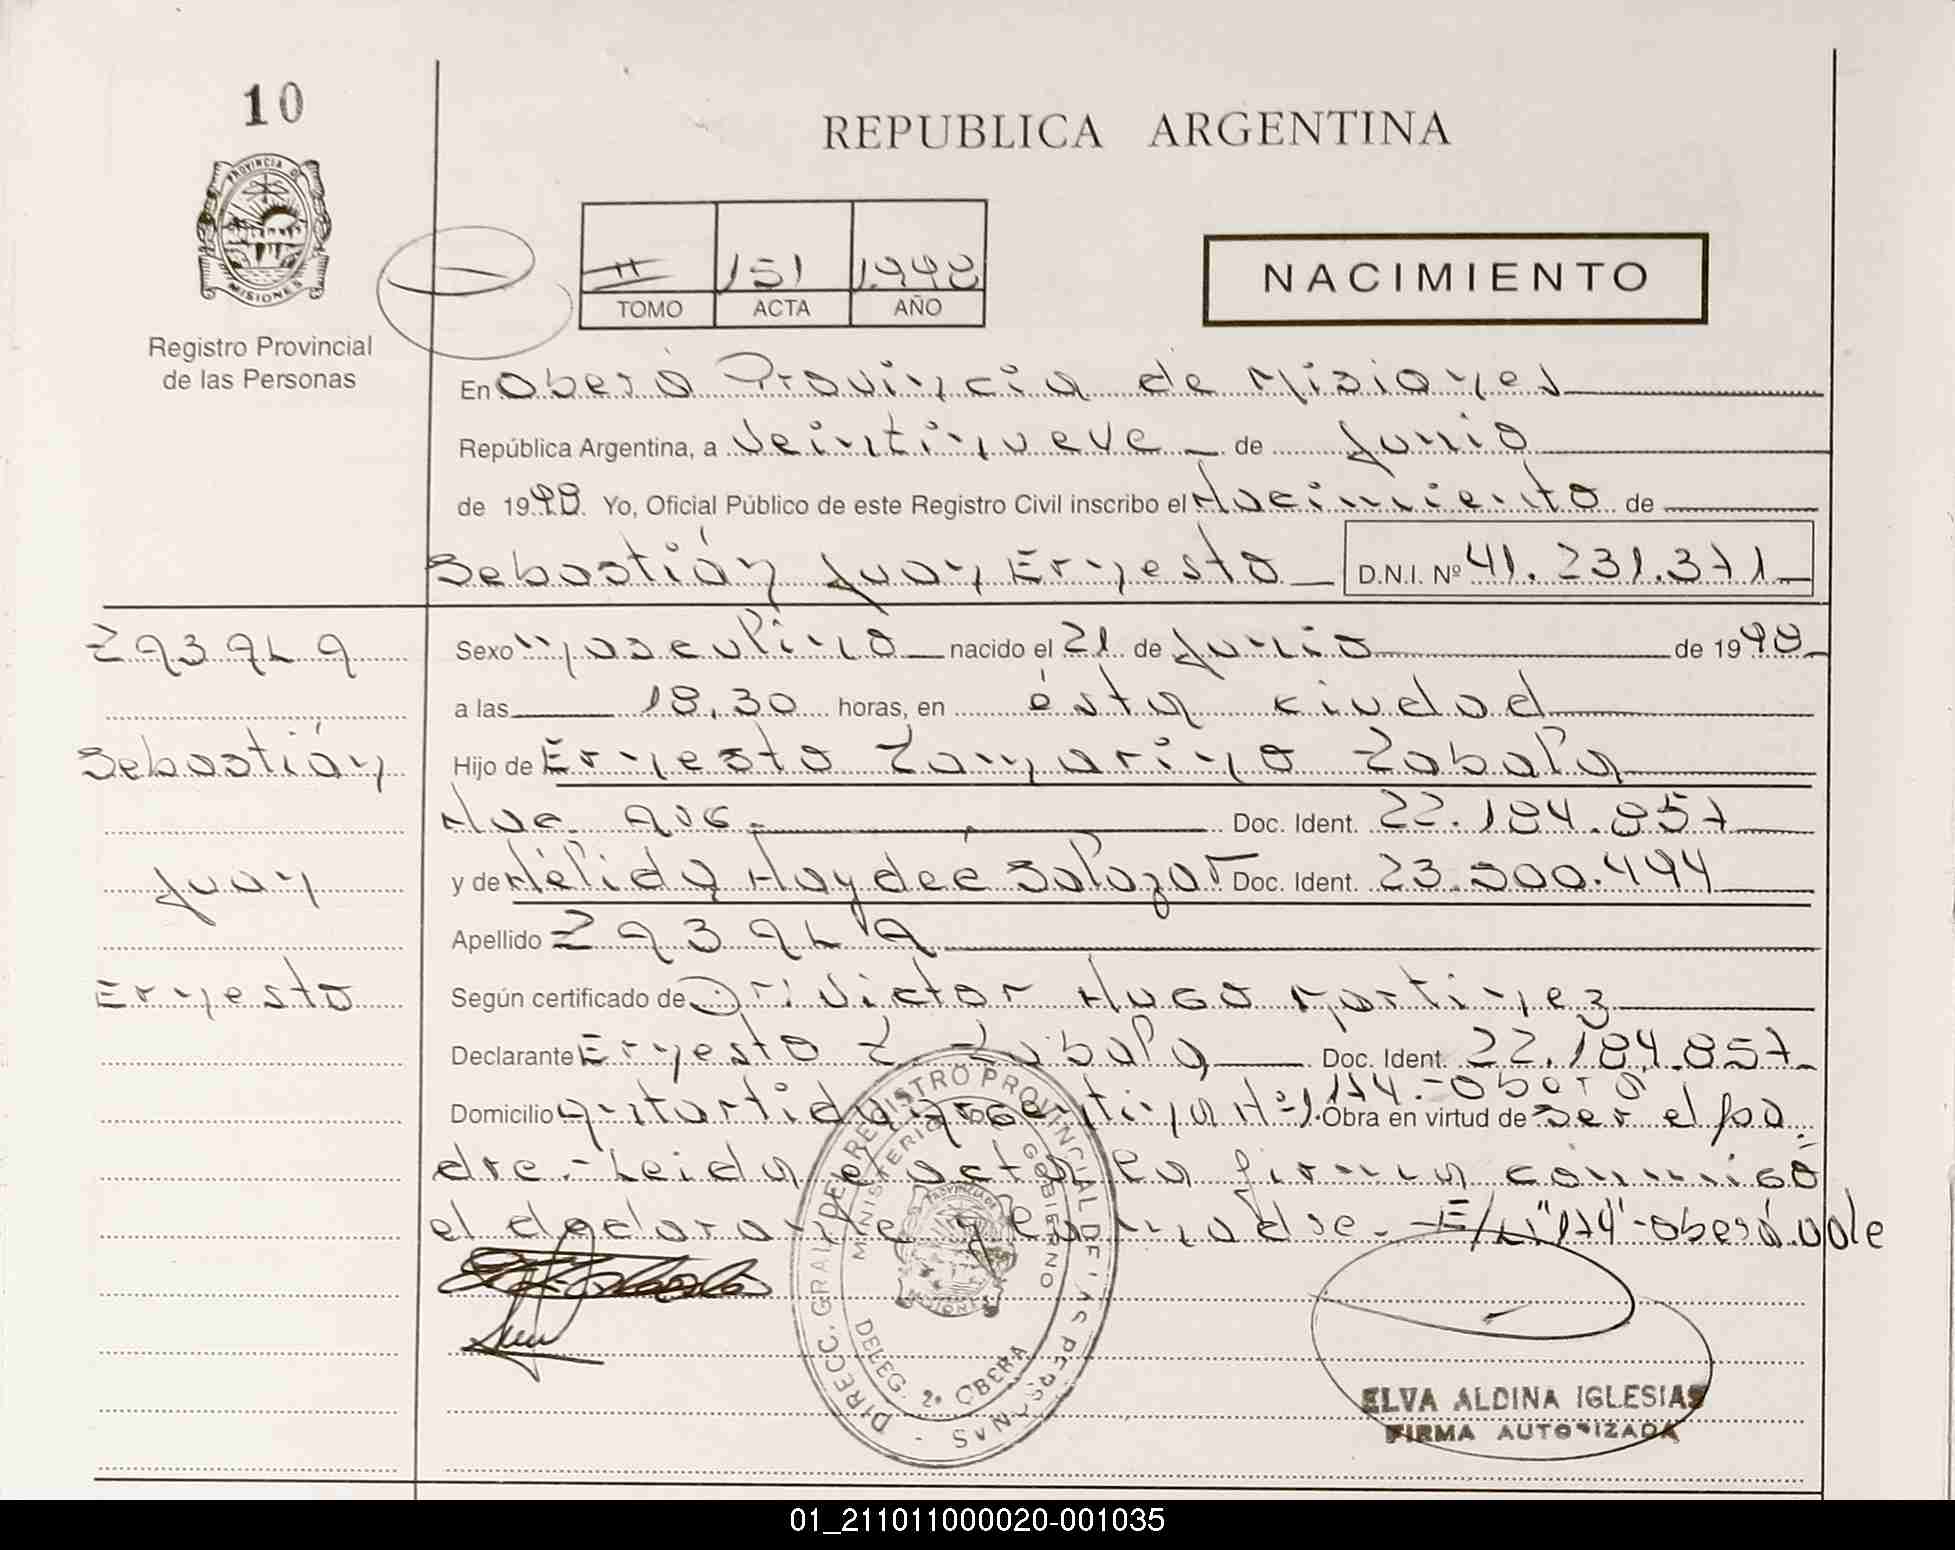 10
REPUBLICA ARGENTINA
PROVINCIA DE MISIONES
II 151 1.998
TOMO ACTA AÑO
NACIMIENTO
Registro Provincial
de las Personas
En Oberá Provincia de Misiones
República Argentina, a veintinueve de Junio
de 1998 Yo, Oficial Público de este Registro Civil inscribo el Nacimiento de
Sebastián Juan Ernesto D.N.I. Nº 41.231.371
ZABALA
Sexo masculino nacido el 21 de Junio de 1998
a las 18,30 horas, en ésta ciudad
Sebastián
Hijo de Ernesto Zamarino Zabala
Nac. arg. Doc. Ident. 22.184.857
Juan
y de Nélida Haydeé Salazar Doc. Ident. 23.500.494
Apellido ZABALA
Ernesto
Según certificado de Dr. Victor Hugo Martinez
Declarante Ernesto Z. Zabala Doc. Ident. 22.184.857
174.-Oberá
Domicilio Antartida Argentina Nº Obra en virtud de ser el pa-
dre.-Leida el acta la firma conmigo
el declarante y la madre.- E/Li "174"-oberá.vale
DIRECC. GRAL. DEL REGISTRO PROVINCIAL DE LAS PERSONAS
MINISTERIO DE GOBIERNO
PROVINCIA DE MISIONES
DELEG. 2ª OBERA
ELVA ALDINA IGLESIAS
FIRMA AUTORIZADA
01_211011000020-001035